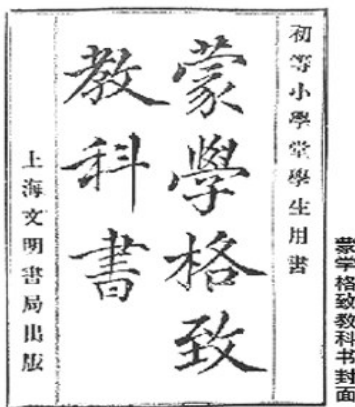 初等小學堂學生用書
蒙學格致
教科書
上海文明書局出版
蒙学格致教科书封面